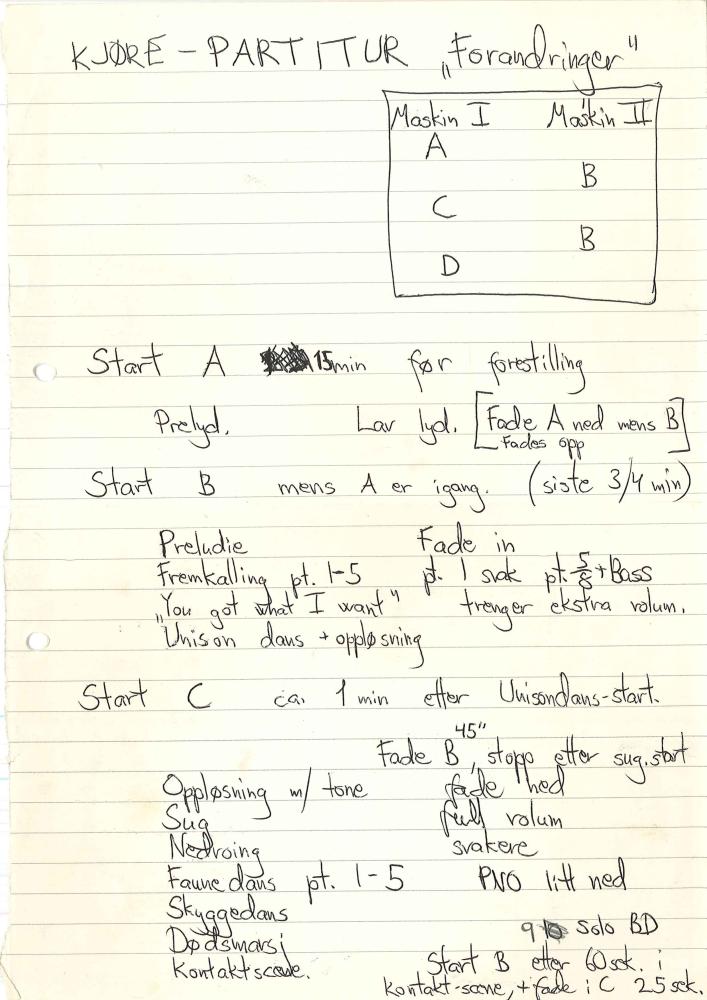 KJØRE – PARTITUR „Forandringer"
Maskin I Maskin II
A
B
C
B
D
Start A 15min før forestilling
Prelyd. Lav lyd. [Fade A ned mens B]
Fades opp
Start B mens A er igang. (siste 3/4 min)
Preludie Fade in
Fremkalling pt. 1-5 pt. 1 svak pt. 5/8 + Bass
„You got what I want" trenger ekstra volum.
Unison dans + oppløsning
Start C ca. 1 min etter Unisondans-start.
45"
Fade B, stopp etter sug.start
Oppløsning m/ tone fade ned
Sug full volum
Nedroing svakere
Faunedans pt. 1-5 PNO litt ned
Skyggedans
Dødsmarsj 9 Solo BD
Kontaktscene. Start B etter 60sek. i
kontakt-scene, + fade i C 25sek.